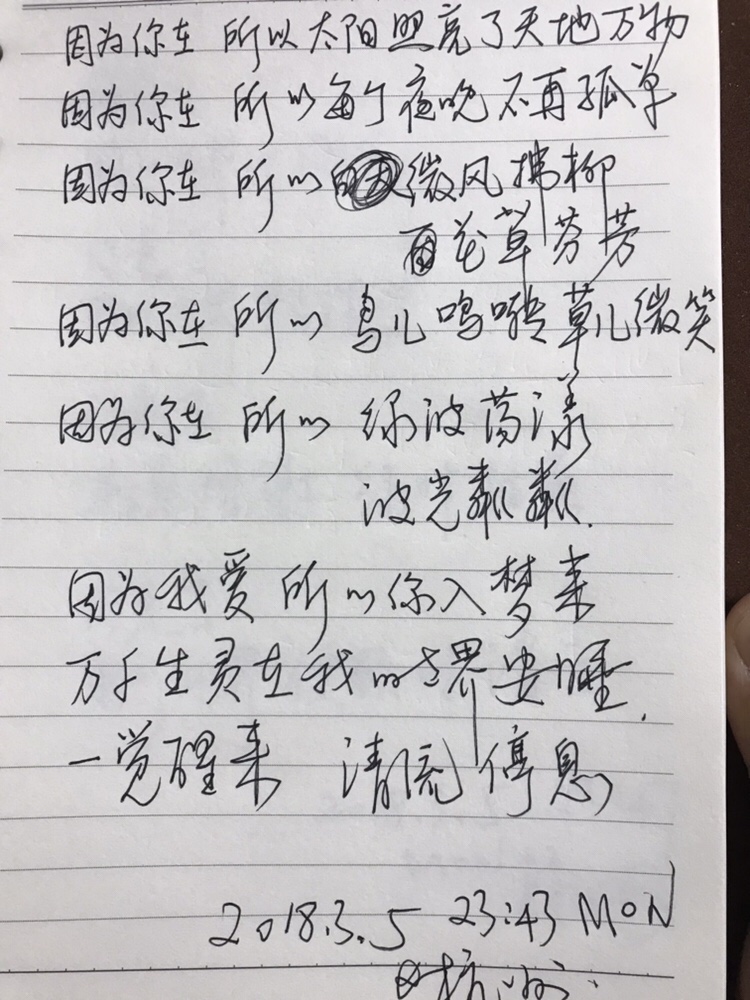 因为你在 所以太阳照亮了天地万物
因为你在 所以每个夜晚不再孤单
因为你在 所以微风拂柳
百花草芬芳
因为你在 所以鸟儿鸣啭草儿微笑
因为你在 所以绿波荡漾
波光粼粼.
因为我爱 所以你入梦来
万千生灵在我的世界安睡.
一觉醒来 清流停息
2018.3.5 23:43 MON